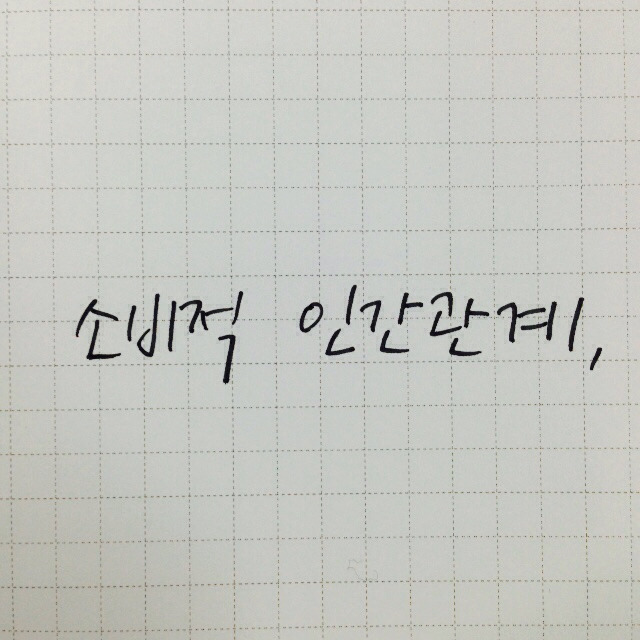 소비적 인간관계,